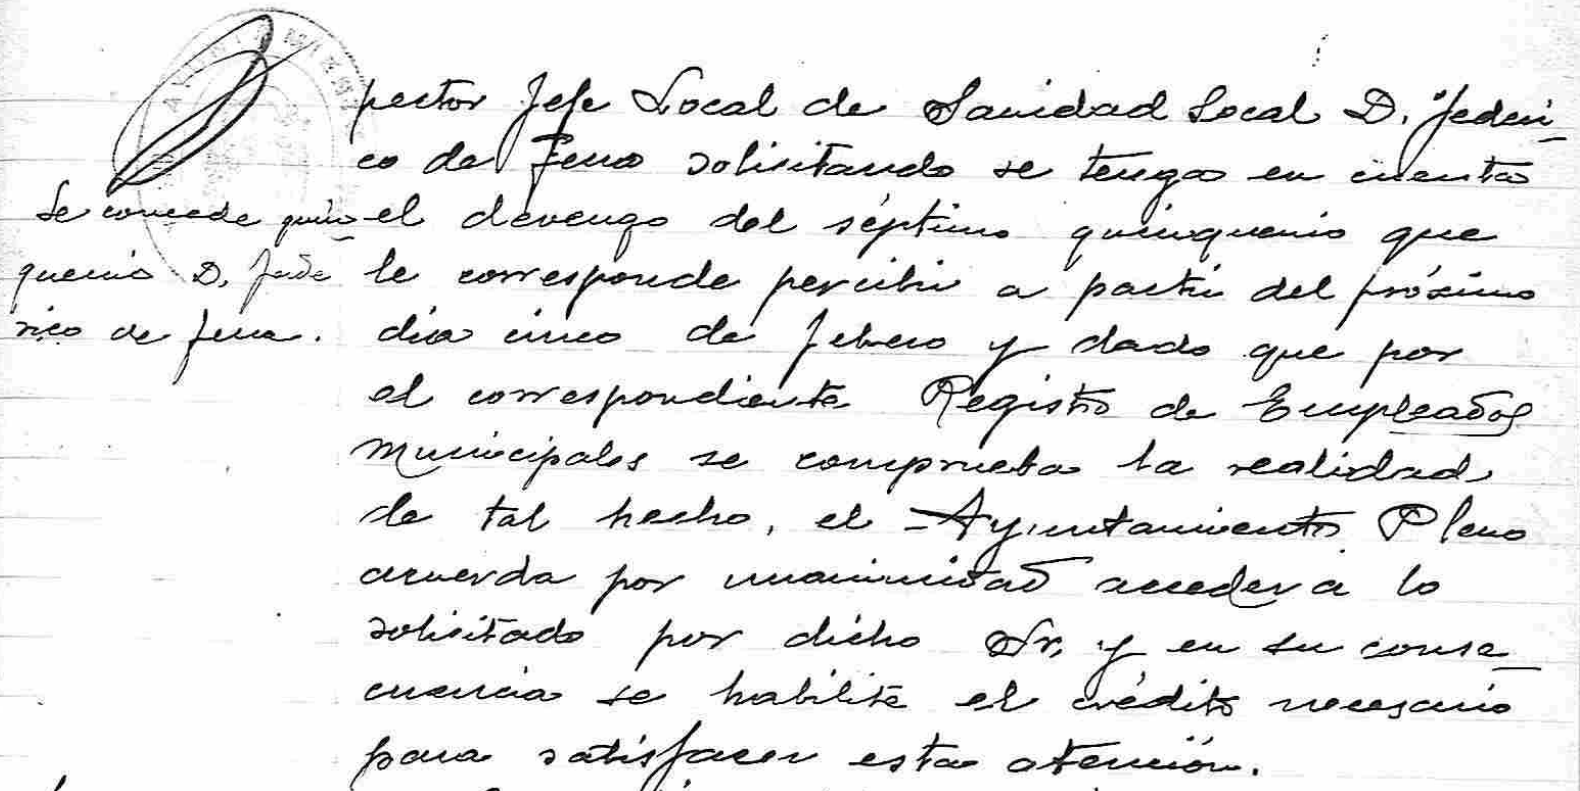 Se concede quin-
quenio D. Fede
rico de Jena.
pector Jefe Local de Sanidad Local D. Federi-
co de Jena solicitando se tenga en cuenta
el devengo del séptimo quinquenio que
le corresponde percibir a partir del próximo
día cinco de febrero y dado que por
el correspondiente Registro de Empleados
Municipales se comprueba la realidad
de tal hecho, el Ayuntamiento Pleno
acuerda por unanimidad acceder a lo
solicitado por dicho Sr, y en su conse-
cuencia se habilite el crédito necesario
para satisfacer esta atención.